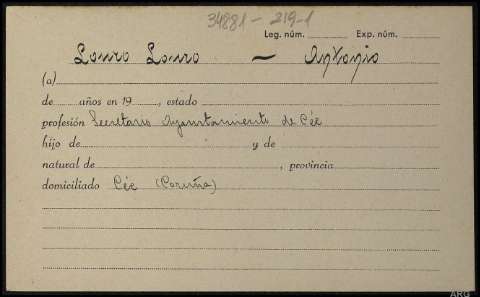 34881-219-1
Leg. núm. Exp. núm.
Louro Louro — Antonio
(a)
de años en 19, estado
profesión Secretario Ayuntamiento de Cée
hijo de y de
natural de, provincia
domiciliado Cée (Coruña)
ARG